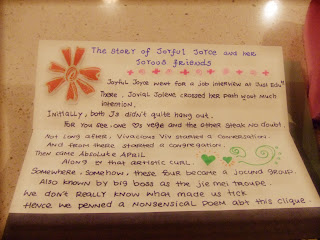 The Story of Joyful Joyce and her
Joyous friends
Joyful Joyce went for a job interview at Just Edu"
There, Jovial Jolene crossed her path w/out much
intention.
Initially, both J's didn't quite hang out.
For you see, one ♡s vege and the other steak no doubt.
Not long after, Vivacious Viv started a conversation.
And from there started a congregation.
Then came Absolute April
Along w/ that artistic curl.
Somewhere, somehow, these four became a jocund group.
Also known by big boss as the jie mei troupe.
We don't really know what made us tick
Hence we penned a nonsensical poem abt this clique.